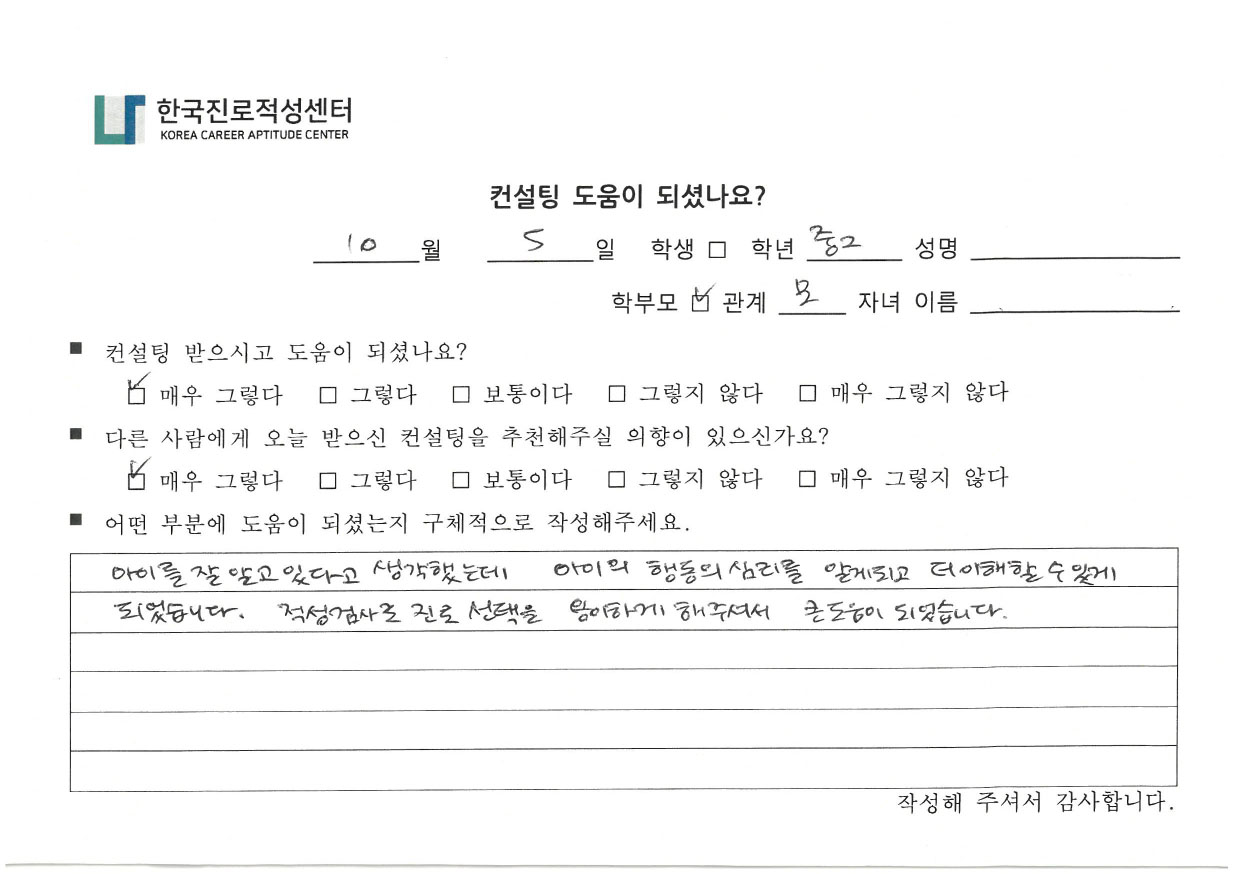 한국진로적성센터
KOREA CAREER APTITUDE CENTER
컨설팅 도움이 되셨나요?
10 월 5 일 학생 □ 학년 중2 성명
학부모 ☑ 관계 모 자녀 이름
■ 컨설팅 받으시고 도움이 되셨나요?
☑ 매우 그렇다 □ 그렇다 □ 보통이다 □ 그렇지 않다 □ 매우 그렇지 않다
■ 다른 사람에게 오늘 받으신 컨설팅을 추천해주실 의향이 있으신가요?
☑ 매우 그렇다 □ 그렇다 □ 보통이다 □ 그렇지 않다 □ 매우 그렇지 않다
■ 어떤 부분에 도움이 되셨는지 구체적으로 작성해주세요.
아이를 잘 알고 있다고 생각했는데 아이의 행동의 심리를 알게되고 더 이해할 수 있게
되었습니다. 적성검사로 진로 선택을 용이하게 해주셔서 큰 도움이 되었습니다.
작성해 주셔서 감사합니다.